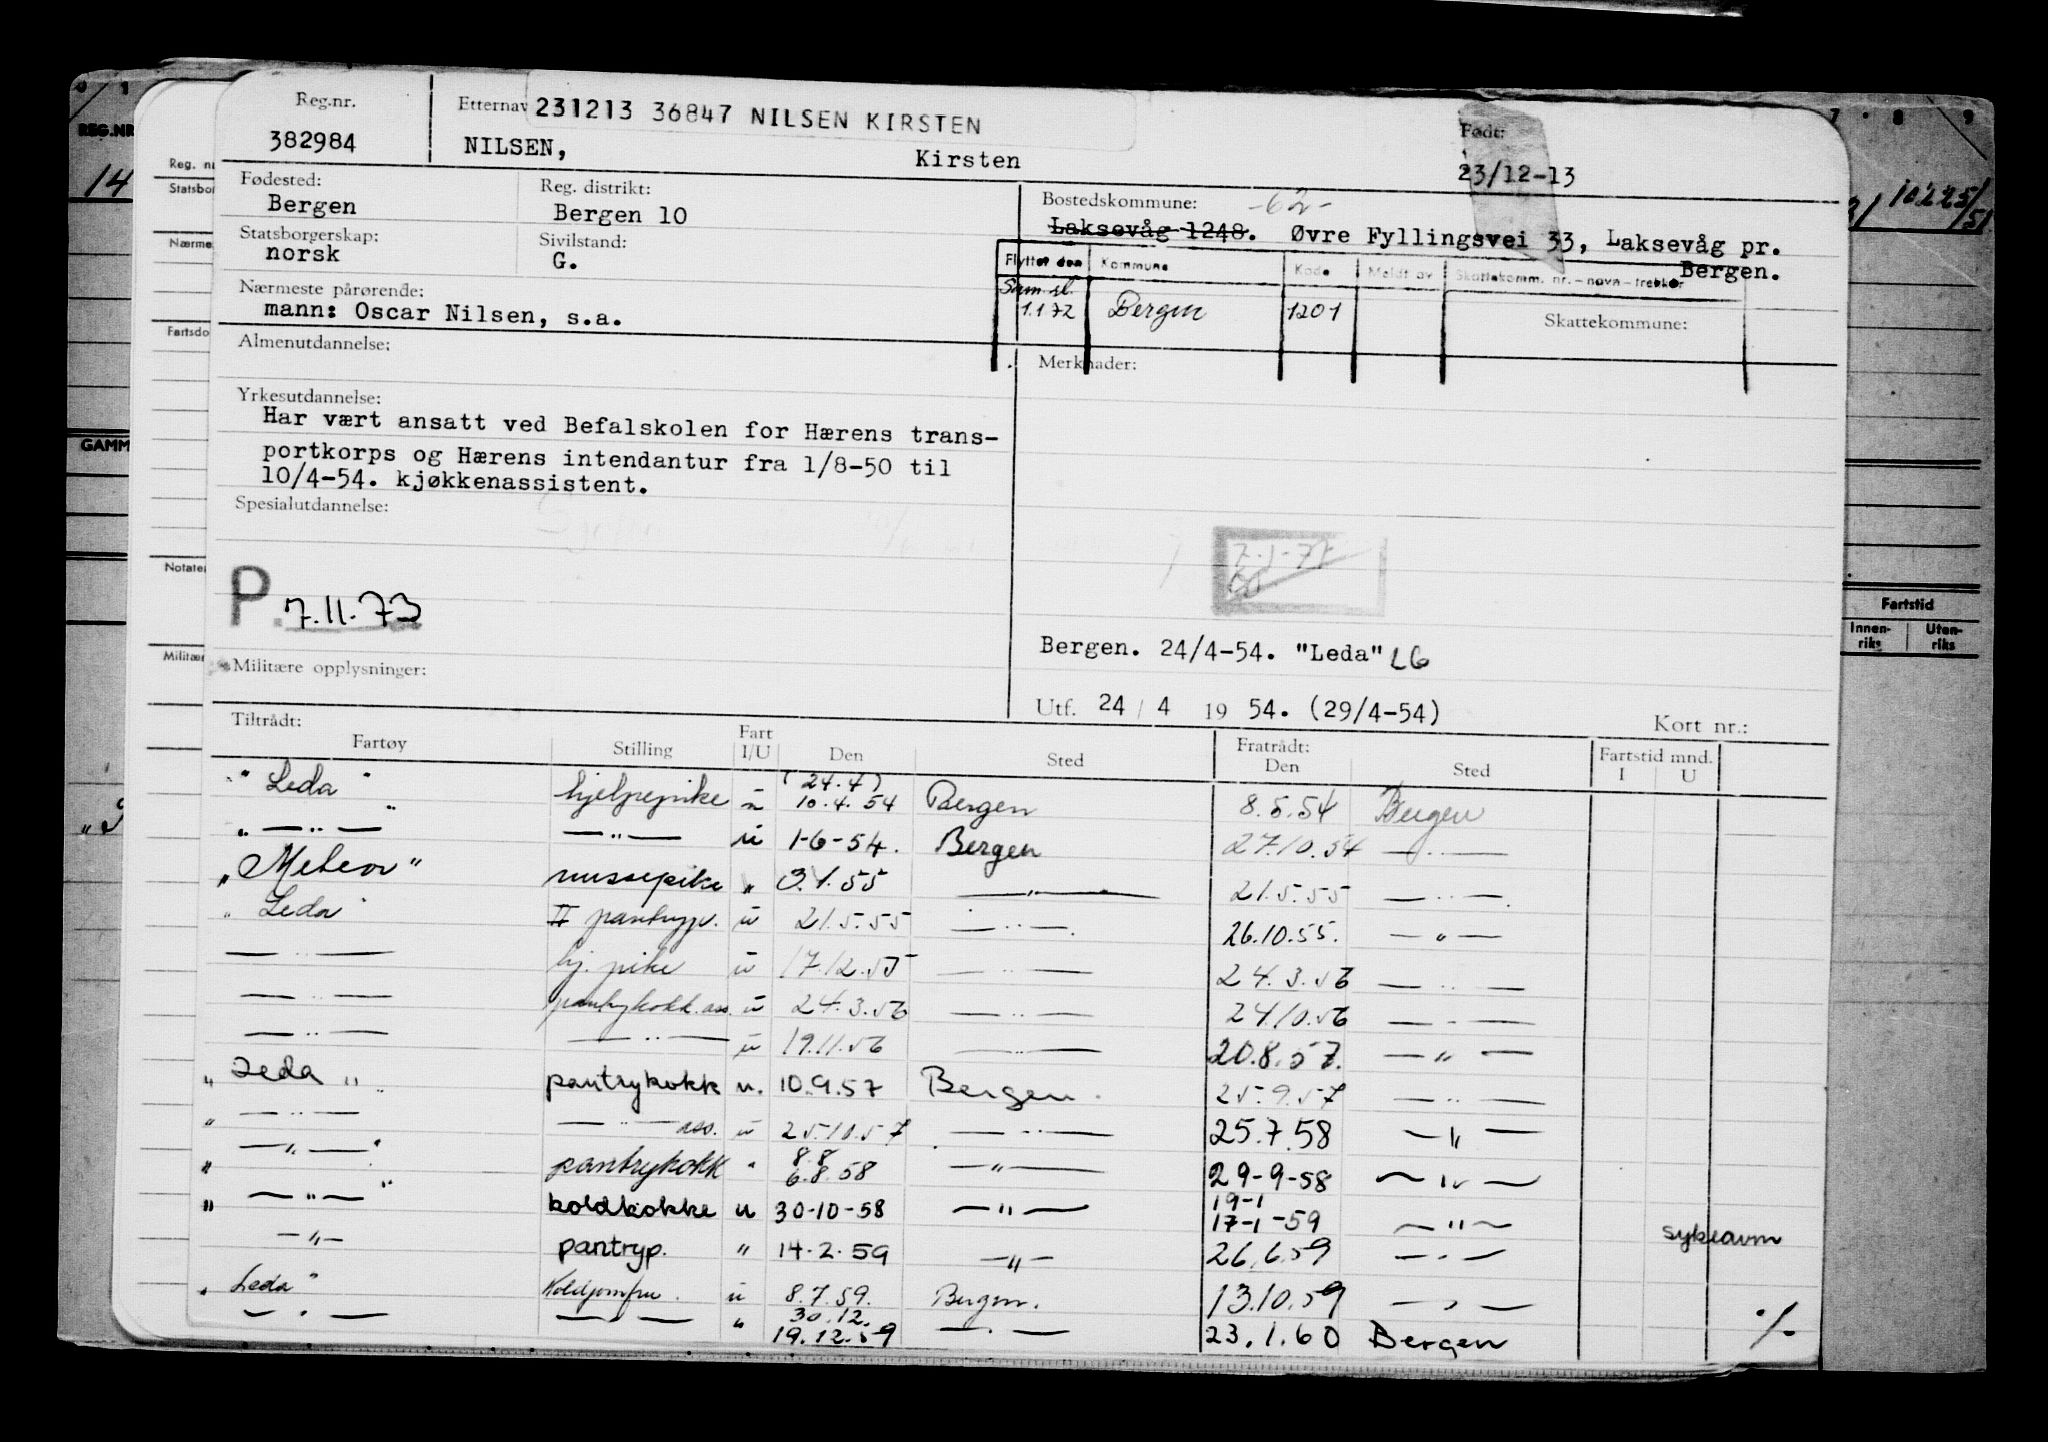 Reg.nr.
382984
Etternav 231213 36847 NILSEN KIRSTEN
NILSEN, Kirsten
Født:
23/12-13
Fødested:
Bergen
Reg. distrikt:
Bergen 10
Bostedskommune: -62-
Laksevåg 1248. Øvre Fyllingsvei 33, Laksevåg pr.
Bergen.
Statsborgerskap:
norsk
Sivilstand:
G.
Flyttet den Kommune Kode Meldt av Skattekomm. nr. - navn - trekkpr
Sam.sl.
1.1 72 Bergen 1201
Skattekommune:
Nærmeste pårørende:
mann: Oscar Nilsen, s.a.
Almenutdannelse:
Merknader:
Yrkesutdannelse:
Har vært ansatt ved Befalskolen for Hærens trans-
portkorps og Hærens intendantur fra 1/8-50 til
10/4-54. kjøkkenassistent.
Spesialutdannelse:
7.1-77
P. 7.11.73
Bergen. 24/4-54. "Leda" LG
Militære opplysninger:
Utf. 24 / 4 19 54. (29/4-54)
Kort nr.:
Tiltrådt: Fratrådt:
Fartøy Stilling Fart I/U Den Sted Den Sted Fartstid mnd. I U
(24.4)
"Leda" hjelpepike u 10.4.54 Bergen 8.5.54 Bergen
" — " — " — " — u 1-6-54. Bergen 27.10.54 — " —
"Meteor" messepike " 3.1.55 — " — 21.5.55 — " —
"Leda" II pantryp. u 21.5.55 — " — 26.10.55. — " —
— " — hj. pike u 17.12.55 — " — 24.3.56 — " —
— " — pantrykokk.ass. u 24.3.56 — " — 24.10.56 — " —
— " — — " — u 19.11.56 — " — 20.8.57. — " —
"Leda" pantrykokk u. 10.9.57 Bergen. 25.9.57 — " —
" — " — — " — ass. u 25.10.57 — " — 25.7.58 — " —
8.8
" — " — " pantrykokk " 6.8.58 — " — 29-9-58 — " —
19-1
" — " — " koldkokke u 30-10-58 — " — 17-1-59 — " — sykeavm
— " — pantryp. " 14.2.59 — " — 26.6.59 — " —
"Leda" Koldjomfru. u 8.7.59. Bergen. 13.10.59 — " —
30.12.
— " — — " — " 19.12.59 — " — 23.1.60 Bergen ./.
REG.NR
14
Reg. n
Statsbor
Nærme
Fartsdo
GAMM
Notater
Militær
7 8 9
10225/51
Fartstid
Innen-
riks
Uten-
riks